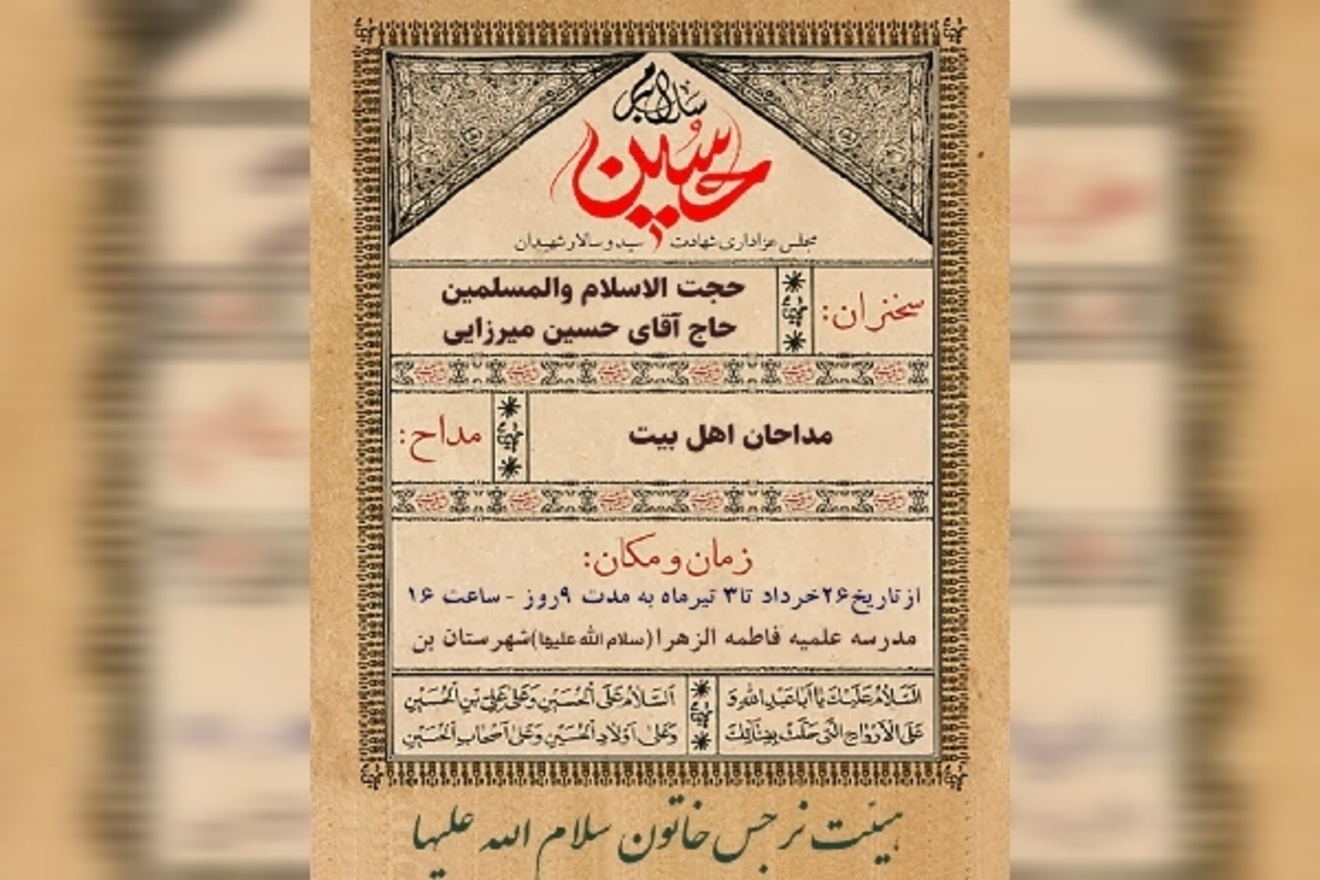 سلام بر
حسین
مجلس عزاداری شهادت سید و سالار شهیدان
سخنران:
حجت الاسلام والمسلمین
حاج آقای حسین میرزایی
مداح:
مداحان اهل بیت
زمان و مکان:
از تاریخ ۲۶ خرداد تا ۳ تیرماه به مدت ۹ روز - ساعت ۱۶
مدرسه علمیه فاطمه الزهرا (سلام الله علیها) شهرستان بن
اَلسَّلامُ عَلَیْکَ یا اَبا عَبْدِ اللهِ وَ
عَلَی الْاَرْواحِ الَّتی حَلَّتْ بِفِنائِکَ
اَلسَّلامُ عَلَی الْحُسَیْنِ وَ عَلی عَلِیِّ بْنِ الْحُسَیْنِ
وَ عَلی اَوْلادِ الْحُسَیْنِ وَ عَلی اَصْحابِ الْحُسَیْنِ
هیئت نرجس خاتون سلام الله علیها